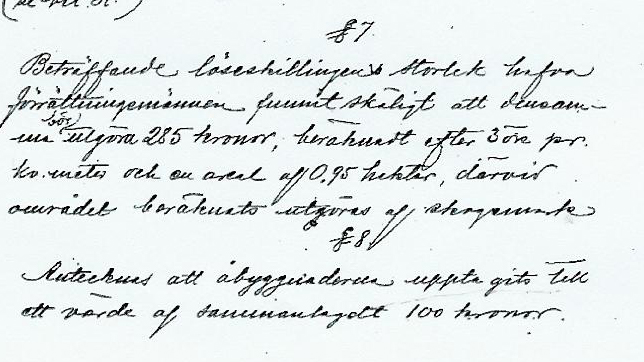 § 7
Beträffande löseskillingens storlek hafva
förrättningsmännen funnit skäligt att densam-
ma bör utgöra 285 kronor, beräknadt efter 3 öre pr.
kv.meter och en areal af 0,95 hektar, därvid
området beräknats utgöras af skogsmark
§ 8
Antecknas att åbyggnaderna upptagits till
ett värde af sammanlagdt 100 kronor.